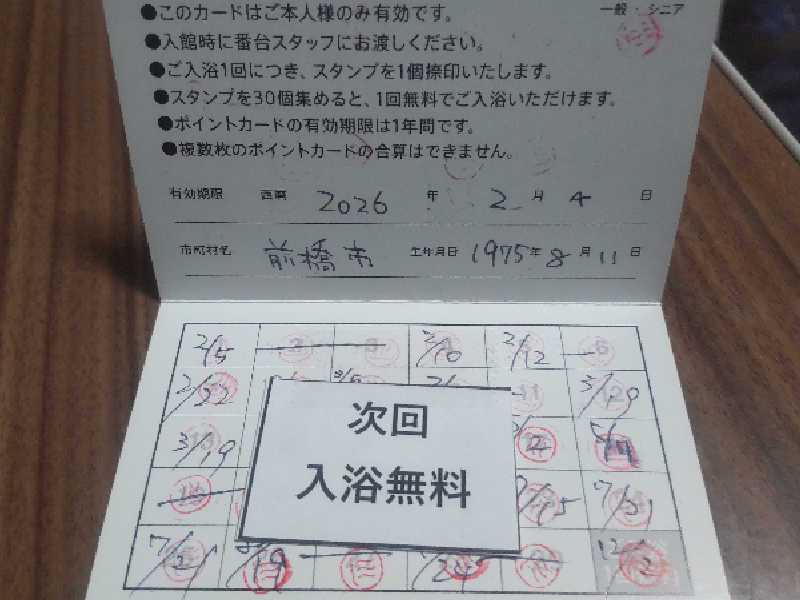 ●このカードはご本人様のみ有効です。
一般・シニア
●入館時に番台スタッフにお渡しください。
●ご入浴1回につき、スタンプを1個捺印いたします。
●スタンプを30個集めると、1回無料でご入浴いただけます。
●ポイントカードの有効期限は1年間です。
●複数枚のポイントカードの合算はできません。
有効期限 西暦 2026 年 2 月 4 日
市町村名 前橋市 生年月日 1975年 8月 11日
2/5 2/10 2/12
2/22 3/19
次回
3/19
入浴無料
7/21
7/21 12/2